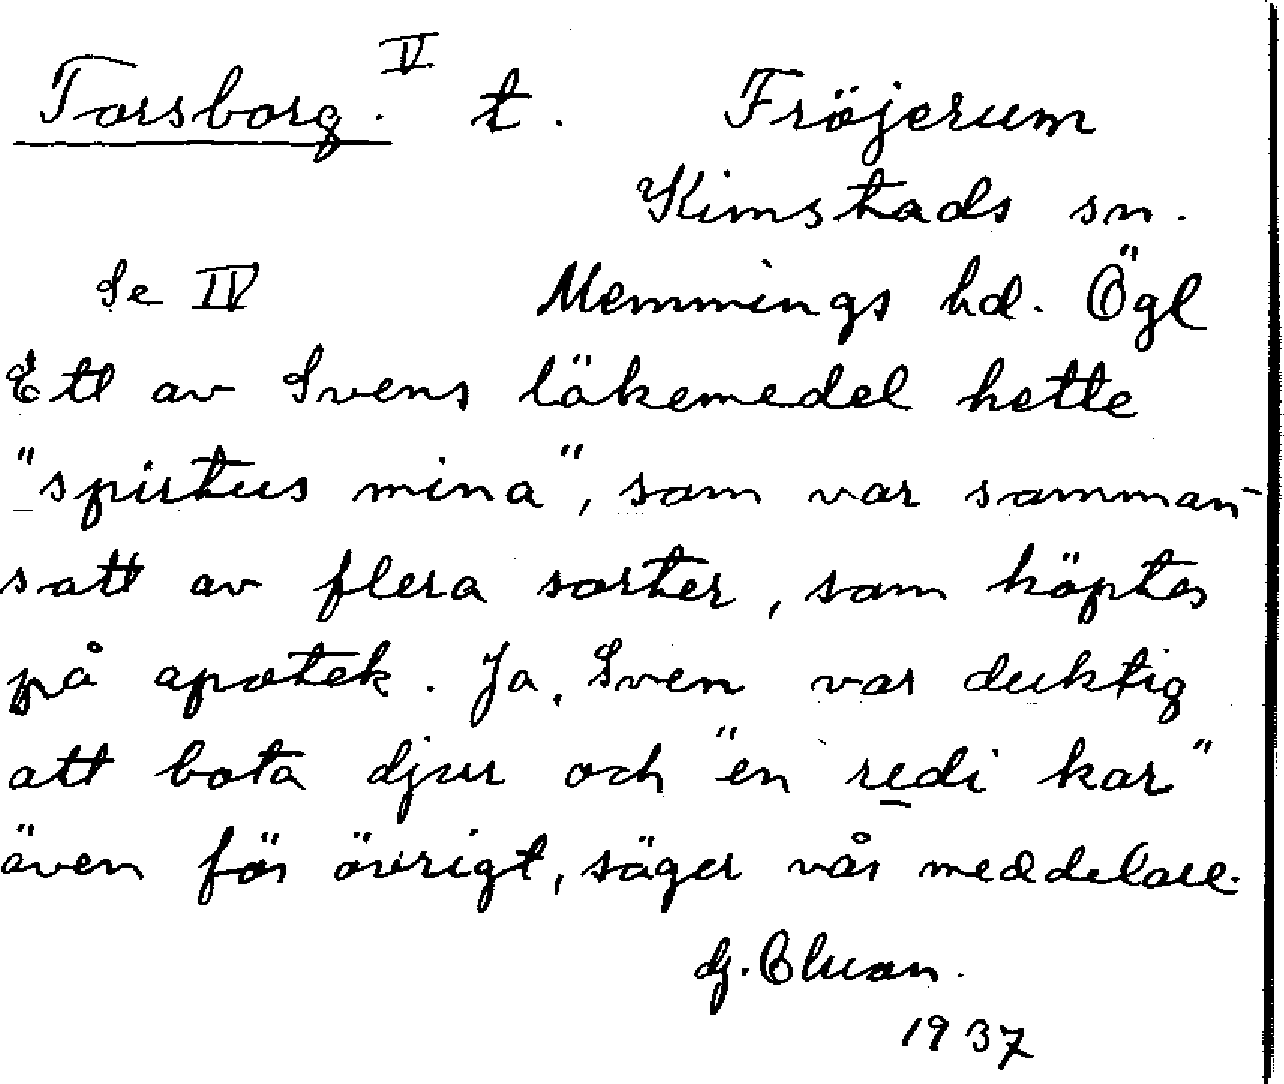 Torsborg. V t. Fröjerum
Kimstads sn.
Se IV Memmings hd. Ögl
Ett av Svens läkemedel hette
"spirtus mina", som var samman-
satt av flera sorter, som köptes
på apotek. Ja, Sven var duktig
att bota djur och "en redi kar"
även för övrigt, säger vår meddelare.
1937